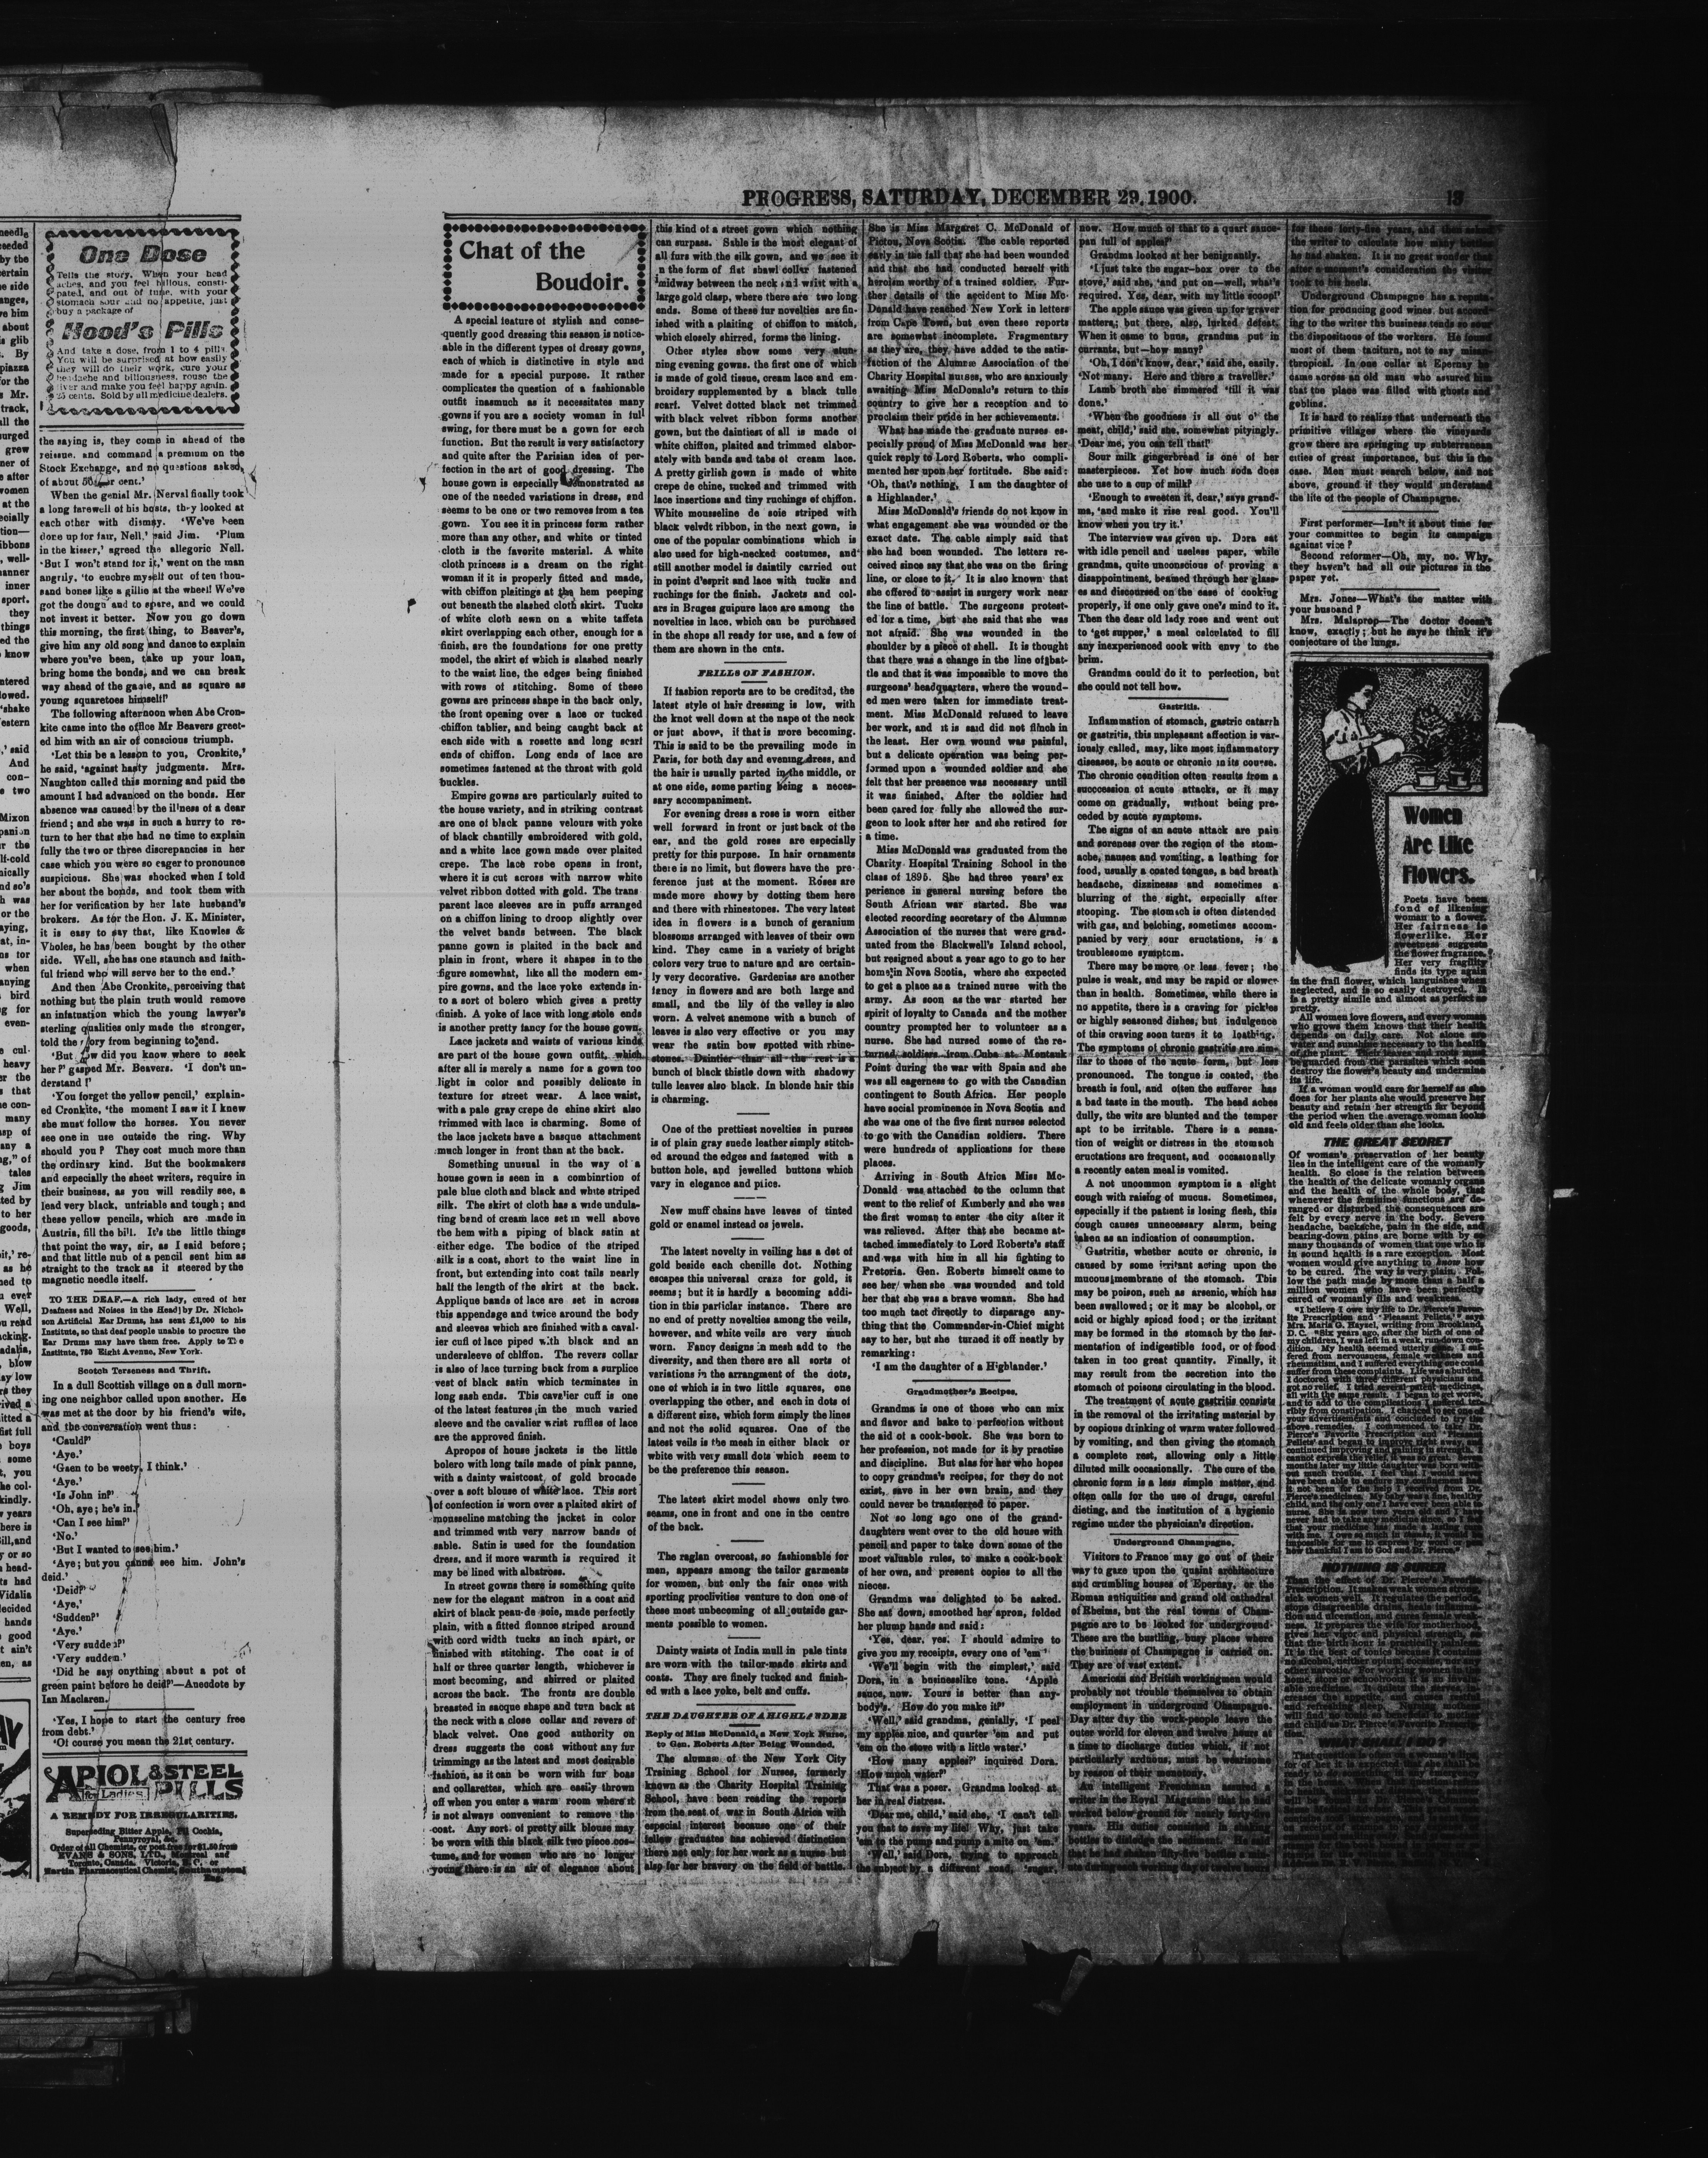 PROGRESS, SATURDAY, DECEMBER 29, 1900.
One Dose
Tells the story. When your head
aches, and you feel bilious, consti-
pated, and out of tune, with your
stomach sour and no appetite, just
buy a package of
Hood's Pills
And take a dose, from 1 to 4 pills.
You will be surprised at how easily
they will do their work, cure your
headache and biliousness, rouse the
liver and make you feel happy again.
25 cents. Sold by all medicine dealers.
the saying is, they come in ahead of the
reissue, and command a premium on the
Stock Exchange, and no questions asked,
When the genial Mr. Nerval finally took
a long farewell of his hosts, they looked at
each other with dismay. 'We've been
done up for fair, Nell,' said Jim. 'Plum
in the kisser,' agreed the allegoric Nell.
'But I won't stand for it,' went on the man
angrily, 'to euchre myself out of ten thou-
sand bones like a gillie at the wheel! We've
got the dough and to spare, and we could
not invest it better. Now you go down
this morning, the first thing, to Beaver's,
give him any old song and dance to explain
where you've been, take up your loan,
bring home the bonds, and we can break
way ahead of the game, and as square as
young squaretoes himself!'
The following afternoon when Abe Cron-
kite came into the office Mr Beavers greet-
ed him with an air of conscious triumph.
'Let this be a lesson to you, Cronkite,'
he said, 'against hasty judgments. Mrs.
Naughton called this morning and paid the
amount I had advanced on the bonds. Her
absence was caused by the illness of a dear
friend; and she was in such a hurry to re-
turn to her that she had no time to explain
fully the two or three discrepancies in her
case which you were so eager to pronounce
suspicious. She was shocked when I told
her about the bonds, and took them with
her for verification by her late husband's
brokers. As for the Hon. J. K. Minister,
it is easy to say that, like Knowles &
Vholes, he has been bought by the other
side. Well, she has one staunch and faith-
ful friend who will serve her to the end.'
And then Abe Cronkite, perceiving that
nothing but the plain truth would remove
an infatuation which the young lawyer's
sterling qualities only made the stronger,
told the story from beginning to end.
'But how did you know where to seek
her?' gasped Mr. Beavers. 'I don't un-
derstand!'
'You forget the yellow pencil,' explain-
ed Cronkite, 'the moment I saw it I knew
she must follow the horses. You never
see one in use outside the ring. Why
should you? They cost much more than
the ordinary kind. But the bookmakers
and especially the sheet writers, require in
their business, as you will readily see, a
lead very black, untriable and tough; and
these yellow pencils, which are made in
Austria, fill the bill. It's the little things
that point the way, sir, as I said before;
and that little nub of a pencil sent him as
straight to the track as it steered by the
magnetic needle itself.
TO THE DEAF.—A rich lady, cured of her
Deafness and Noises in the Head by Dr. Nichol-
son Artificial Ear Drums, has sent £1,000 to his
Institute, so that deaf people unable to procure the
Ear Drums may have them free. Apply to The
Institute, 780 Eight Avenue, New York.
Scotch Terseness and Thrift.
In a dull Scottish village on a dull morn-
ing one neighbor called upon another. He
was met at the door by his friend's wife,
and the conversation went thus:
'Cauld?'
'Aye.'
'Gaen to be weety, I think.'
'Aye.'
'Is John in?'
'Oh, aye; he's in.'
'Can I see him?'
'No.'
'But I wanted to see him.'
'Aye; but you canna see him. John's
deid.'
'Deid?'
'Aye,'
'Sudden?'
'Aye.'
'Very sudden?'
'Very sudden.'
'Did he say onything about a pot of
green paint before he deid?'—Anecdote by
Ian Maclaren.
'Yes, I hope to start the century free
from debt.'
'Of course you mean the 21st century.
APIOL & STEEL
for Ladies PILLS
A REMEDY FOR IRREGULARITIES.
Superseding Bitter Apple, Pil Cochia,
Pennyroyal, &c.
Order of all Chemists, or post free for $1.50 from
EVANS & SONS, LTD., Montreal and
Toronto, Canada. Victoria, B. C. or
Martin Pharmaceutical Chemist, Southampton
Eng.
Chat of the
Boudoir.
A special feature of stylish and conse-
quently good dressing this season is notice-
able in the different types of dressy gowns,
each of which is distinctive in style and
made for a special purpose. It rather
complicates the question of a fashionable
outfit inasmuch as it necessitates many
gowns if you are a society woman in full
swing, for there must be a gown for each
function. But the result is very satisfactory
and quite after the Parisian idea of per-
fection in the art of good dressing. The
house gown is especially demonstrated as
one of the needed variations in dress, and
seems to be one or two removes from a tea
gown. You see it in princess form rather
more than any other, and white or tinted
cloth is the favorite material. A white
cloth princess is a dream on the right
woman if it is properly fitted and made,
with chiffon plaitings at the hem peeping
out beneath the slashed cloth skirt. Tucks
of white cloth sewn on a white taffeta
skirt overlapping each other, enough for a
finish, are the foundations for one pretty
model, the skirt of which is slashed nearly
to the waist line, the edges being finished
with rows of stitching. Some of these
gowns are princess shape in the back only,
the front opening over a lace or tucked
chiffon tablier, and being caught back at
each side with a rosette and long scarf
ends of chiffon. Long ends of lace are
sometimes fastened at the throat with gold
buckles.
Empire gowns are particularly suited to
the house variety, and in striking contrast
are one of black panne velours with yoke
of black chantilly embroidered with gold,
and a white lace gown made over plaited
crepe. The lace robe opens in front,
where it is cut across with narrow white
velvet ribbon dotted with gold. The trans
parent lace sleeves are in puffs arranged
on a chiffon lining to droop slightly over
the velvet bands between. The black
panne gown is plaited in the back and
plain in front, where it shapes in to the
figure somewhat, like all the modern em-
pire gowns, and the lace yoke extends in-
to a sort of bolero which gives a pretty
finish. A yoke of lace with long stole ends
is another pretty fancy for the house gown.
Lace jackets and waists of various kinds
are part of the house gown outfit, which
after all is merely a name for a gown too
light in color and possibly delicate in
texture for street wear. A lace waist,
with a pale gray crepe de chine skirt also
trimmed with lace is charming. Some of
the lace jackets have a basque attachment
much longer in front than at the back.
Something unusual in the way of a
house gown is seen in a combinrtion of
pale blue cloth and black and white striped
silk. The skirt of cloth has a wide undula-
ting band of cream lace set in well above
the hem with a piping of black satin at
either edge. The bodice of the striped
silk is a coat, short to the waist line in
front, but extending into coat tails nearly
half the length of the skirt at the back.
Applique bands of lace are set in across
this appendage and twice around the body
and sleeves which are finished with a caval-
ier cuff of lace piped with black and an
undersleeve of chiffon. The revers collar
is also of lace turning back from a surplice
vest of black satin which terminates in
long sash ends. This cavalier cuff is one
of the latest features in the much varied
sleeve and the cavalier wrist ruffles of lace
are the approved finish.
Apropos of house jackets is the little
bolero with long tails made of pink panne,
with a dainty waistcoat of gold brocade
over a soft blouse of white lace. This sort
of confection is worn over a plaited skirt of
mousseline matching the jacket in color
and trimmed with very narrow bands of
sable. Satin is used for the foundation
dress, and if more warmth is required it
may be lined with albatross.
In street gowns there is something quite
new for the elegant matron in a coat and
skirt of black peau-de soie, made perfectly
plain, with a fitted flonnce striped around
with cord width tucks an inch spart, or
finished with stitching. The coat is of
half or three quarter length, whichever is
most becoming, and shirred or plaited
across the back. The fronts are double
breasted in sacque shape and turn back at
the neck with a close collar and revers of
black velvet. One good authority on
dress suggests the coat without any fur
trimmings as the latest and most desirable
fashion, as it can be worn with fur boas
and collarettes, which are easily thrown
off when you enter a warm room where it
is not always convenient to remove the
coat. Any sort of pretty silk blouse may
be worn with this black silk two piece cos-
tume, and for women who are no longer
young there is an air of elegance about
this kind of a street gown which nothing
can surpass. Sable is the most elegant of
all furs with the silk gown, and we see it
n the form of flat shawl collar fastened
midway between the neck and wrist with a
large gold clasp, where there are two long
ends. Some of these fur novelties are fin-
ished with a plaiting of chiffon to match,
which closely shirred, forms the lining.
Other styles show some very stun-
ning evening gowns. the first one of which
is made of gold tissue, cream lace and em-
broidery supplemented by a black tulle
scarf. Velvet dotted black net trimmed
with black velvet ribbon forms another
gown, but the daintiest of all is made of
white chiffon, plaited and trimmed elabor-
ately with bands and tabs of cream lace.
A pretty girlish gown is made of white
crepe de chine, tucked and trimmed with
lace insertions and tiny ruchings of chiffon.
White mousseline de soie striped with
black velvdt ribbon, in the next gown, is
one of the popular combinations which is
also used for high-necked costumes, and
still another model is daintily carried out
in point d'esprit and lace with tucks and
ruchings for the finish. Jackets and col-
ars in Bruges guipure lace are among the
novelties in lace, which can be purchased
in the shops all ready for use, and a few of
them are shown in the cnts.
FRILLS OF FASHION.
If fashion reports are to be credited, the
latest style of hair dressing is low, with
the knot well down at the nape of the neck
or just above, if that is more becoming.
This is said to be the prevailing mode in
Paris, for both day and evening dress, and
the hair is usually parted in the middle, or
at one side, some parting being a neces-
sary accompaniment.
For evening dress a rose is worn either
well forward in front or just back of the
ear, and the gold roses are especially
pretty for this purpose. In hair ornaments
there is no limit, but flowers have the pre-
ference just at the moment. Roses are
made more showy by dotting them here
and there with rhinestones. The very latest
idea in flowers is a bunch of geranium
blossoms arranged with leaves of their own
kind. They came in a variety of bright
colors very true to nature and are certain-
ly very decorative. Gardenias are another
fancy in flowers and are both large and
small, and the lily of the valley is also
worn. A velvet anemone with a bunch of
leaves is also very effective or you may
wear the satin bow spotted with rhine-
stones. Daintier than all the rest is a
bunch of black thistle down with shadowy
tulle leaves also black. In blonde hair this
is charming.
One of the prettiest novelties in purses
is of plain gray suede leather simply stitch-
ed around the edges and fastened with a
button hole, and jewelled buttons which
vary in elegance and price.
New muff chains have leaves of tinted
gold or enamel instead os jewels.
The latest novelty in veiling has a dot of
gold beside each chenille dot. Nothing
escapes this universal craze for gold, it
seems; but it is hardly a becoming addi-
tion in this particlar instance. There are
no end of pretty novelties among the veils,
however, and white veils are very much
worn. Fancy designs in mesh add to the
diversity, and then there are all sorts of
variations in the arrangment of the dots,
one of which is in two little squares, one
overlapping the other, and each in dots of
a different size, which form simply the lines
and not the solid squares. One of the
latest veils is the mesh in either black or
white with very small dots which seem to
be the preference this season.
The latest skirt model shows only two
seams, one in front and one in the centre
of the back.
The raglan overcoat, so fashionable for
men, appears among the tailor garments
for women, but only the fair ones with
sporting proclivities venture to don one of
these most unbecoming of all outside gar-
ments possible to women.
Dainty waists of India mull in pale tints
are worn with the tailor-made skirts and
coats. They are finely tucked and finish-
ed with a lace yoke, belt and cuffs.
THE DAUGHTER OF A HIGHLANDER
Reply of Miss McDonald, a New York Nurse,
to Gen. Roberts After Being Wounded.
The alumnæ of the New York City
Training School for Nurses, formerly
known as the Charity Hospital Training
School, have been reading the reports
from the seat of war in South Africa with
especial interest because one of their
fellow graduates has achieved distinction
there not only for her work as a nurse but
also for her bravery on the field of battle.
She is Miss Margaret C. McDonald of
Pictou, Nova Scotia. The cable reported
early in the fall that she had been wounded
and that she had conducted herself with
heroism worthy of a trained soldier. Fur-
ther details of the accident to Miss Mc-
Donald have reached New York in letters
from Cape Town, but even these reports
are somewhat incomplete. Fragmentary
as they are, they have added to the satis-
faction of the Alumnæ Association of the
Charity Hospital nurses, who are anxiously
awaiting Miss McDonald's return to this
country to give her a reception and to
proclaim their pride in her achievements.
What has made the graduate nurses es-
pecially proud of Miss McDonald was her
quick reply to Lord Roberts, who compli-
mented her upon her fortitude. She said:
'Oh, that's nothing. I am the daughter of
a Highlander.'
Miss McDonald's friends do not know in
what engagement she was wounded or the
exact date. The cable simply said that
she had been wounded. The letters re-
ceived since say that she was on the firing
line, or close to it. It is also known that
she offered to assist in surgery work near
the line of battle. The surgeons protest-
ed for a time, but she said that she was
not afraid. She was wounded in the
shoulder by a piece of shell. It is thought
that there was a change in the line of bat-
tle and that it was impossible to move the
surgeons' headquarters, where the wound-
ed men were taken for immediate treat-
ment. Miss McDonald refused to leave
her work, and it is said did not flinch in
the least. Her own wound was painful,
but a delicate operation was being per-
formed upon a wounded soldier and she
felt that her presence was necessary until
it was finished. After the soldier had
been cared for fully she allowed the sur-
geon to look after her and she retired for
a time.
Miss McDonald was graduated from the
Charity Hospital Training School in the
class of 1895. She had three years' ex
perience in general nursing before the
South African war started. She was
elected recording secretary of the Alumnæ
Association of the nurses that were grad-
uated from the Blackwell's Island school,
but resigned about a year ago to go to her
home in Nova Scotia, where she expected
to get a place as a trained nurse with the
army. As soon as the war started her
spirit of loyalty to Canada and the mother
country prompted her to volunteer as a
nurse. She had nursed some of the re-
turned soldiers from Cuba at Montauk
Point during the war with Spain and she
was all eagerness to go with the Canadian
contingent to South Africa. Her people
have social prominence in Nova Scotia and
she was one of the five first nurses selected
to go with the Canadian soldiers. There
were hundreds of applications for these
places.
Arriving in South Africa Miss Mc-
Donald was attached to the column that
went to the relief of Kimberly and she was
the first woman to enter the city after it
was relieved. After that she became at-
tached immediately to Lord Roberts's staff
and was with him in all his fighting to
Pretoria. Gen. Roberts himself came to
see her when she was wounded and told
her that she was a brave woman. She had
too much tact directly to disparage any-
thing that the Commander-in-Chief might
say to her, but she turned it off neatly by
remarking:
'I am the daughter of a Highlander.'
Grandmother's Recipes.
Grandma is one of those who can mix
and flavor and bake to perfection without
the aid of a cook-book. She was born to
her profession, not made for it by practise
and discipline. But alas for her who hopes
to copy grandma's recipes, for they do not
exist, save in her own brain, and they
could never be transferred to paper.
Not so long ago one of the grand-
daughters went over to the old house with
pencil and paper to take down some of the
most valuable rules, to make a cook-book
of her own, and present copies to all the
nieces.
Grandma was delighted to be asked.
She sat down, smoothed her apron, folded
her plump hands and said:
'Yes, dear, yes. I should admire to
give you my receipts, every one of 'em'
'We'll begin with the simplest,' said
Dora, in a businesslike tone. 'Apple
sauce, now. Yours is better than any-
body's. How do you make it?'
'Well,' said grandma, genially, 'I peel
my apples nice, and quarter 'em and put
'em on the stove with a little water.'
'How many apples?' inquired Dora.
'How much water?'
That was a poser. Grandma looked at
her in real distress.
'Dear me, child,' said she, 'I can't tell
you that to save my life! Why, just take
'em to the pump and pump a mite on 'em.'
'Well,' said Dora, trying to approach
the subject by a different road, 'sugar,
now. How much of that to a quart sauce-
pan full of apples?'
Grandma looked at her benignantly.
'I just take the sugar-box over to the
stove,' said she, 'and put on—well, what's
required. Yes, dear, with my little scoop!'
The apple sauce was given up for graver
matters; but there, also, lurked defeat.
When it came to buns, grandma put in
currants, but—how many?
'Oh, I don't know, dear,' said she, easily.
'Not many. Here and there a traveller.'
Lamb broth she simmered 'till it was
done.'
'When the goodness is all out o' the
meat, child,' said she, somewhat pityingly.
'Dear me, you can tell that!'
Sour milk gingerbread is one of her
masterpieces. Yet how much soda does
she use to a cup of milk?
'Enough to sweeten it, dear,' says grand-
ma, 'and make it rise real good. You'll
know when you try it.'
The interview was given up. Dora sat
with idle pencil and useless paper, while
grandma, quite unconscious of proving a
disappointment, beamed through her glass-
es and discoursed on the ease of cooking
properly, if one only gave one's mind to it.
Then the dear old lady rose and went out
to 'get supper,' a meal calculated to fill
any inexperienced cook with envy to the
brim.
Grandma could do it to perfection, but
she could not tell how.
Gastritis.
Inflammation of stomach, gastric catarrh
or gastritis, this unpleasant affection is var-
iously called, may, like most inflammatory
diseases, be acute or chronic in its course.
The chronic condition often results from a
succession of acute attacks, or it may
come on gradually, without being pre-
ceded by acute symptoms.
The signs of an acute attack are pain
and soreness over the region of the stom-
ache, nausea and vomiting, a loathing for
food, usually a coated tongue, a bad breath
headache, dizziness and sometimes a
blurring of the sight, especially after
stooping. The stomach is often distended
with gas, and belching, sometimes accom-
panied by very sour eructations, is a
troublesome symptom.
There may be more or less fever; the
pulse is weak, and may be rapid or slower
than in health. Sometimes, while there is
no appetite, there is a craving for pickles
or highly seasoned dishes, but indulgence
of this craving soon turns it to loathing.
The symptoms of chronic gastritis are sim-
ilar to those of the acute form, but less
pronounced. The tongue is coated, the
breath is foul, and often the sufferer has
a bad taste in the mouth. The head aches
dully, the wits are blunted and the temper
apt to be irritable. There is a sensa-
tion of weight or distress in the stomach
eructations are frequent, and occasionally
a recently eaten meal is vomited.
A not uncommon symptom is a slight
cough with raising of mucus. Sometimes,
especially if the patient is losing flesh, this
cough causes unnecessary alarm, being
taken as an indication of consumption.
Gastritis, whether acute or chronic, is
caused by some irritant acting upon the
mucous membrane of the stomach. This
may be poison, such as arsenic, which has
been swallowed; or it may be alcohol, or
acid or highly spiced food; or the irritant
may be formed in the stomach by the fer-
mentation of indigestible food, or of food
taken in too great quantity. Finally, it
may result from the secretion into the
stomach of poisons circulating in the blood.
The treatment of acute gastritis consists
in the removal of the irritating material by
by copious drinking of warm water followed
by vomiting, and then giving the stomach
a complete rest, allowing only a little
diluted milk occasionally. The cure of the
chronic form is a less simple matter, and
often calls for the use of drugs, careful
dieting, and the institution of a hygienic
regime under the physician's direction.
Underground Champagne.
Visitors to France may go out of their
way to gaze upon the quaint architecture
and crumbling houses of Epernay, or the
Roman antiquities and grand old cathedral
of Rheims, but the real towns of Cham-
pagne are to be looked for underground.
These are the bustling, busy places where
the business of Champagne is carried on.
They are of vast extent.
American and British workingmen would
probably not trouble themselves to obtain
employment in underground Champagne.
Day after day the work-people leave the
outer world for eleven and twelve hours at
a time to discharge duties which, if not
particularly arduous, must be wearisome
by reason of their monotony.
An intelligent Frenchman assured a
writer in the Royal Magazine that he had
worked below ground for nearly forty-five
years. His duties consisted in shaking
bottles to dislodge the sediment. He said
that he had shaken fifty-five bottles a min-
ute during each working day of twelve hours
for these forty-five years, and then asked
the writer to calculate how many bottles
he had shaken. It is no great wonder that
after a moment's consideration the visitor
took to his heels.
Underground Champagne has a reputa-
tion for producing good wines, but accord-
ing to the writer the business tends to sour
the dispositions of the workers. He found
most of them taciturn, not to say misan-
thropical. In one cellar at Epernay he
came across an old man who assured him
that the place was filled with ghosts and
goblins.
It is hard to realize that underneath the
primitive villages where the vineyards
grow there are springing up subterranean
cities of great importance, but this is the
case. Men must search below, and not
above, ground if they would understand
the life of the people of Champagne.
First performer—Isn't it about time for
your committee to begin its campaign
against vice?
Second reformer—Oh, my, no. Why,
they haven't had all our pictures in the
paper yet.
Mrs. Jones—What's the matter with
your husband?
Mrs. Malaprop—The doctor doesn't
know, exactly; but he says he think it's
conjecture of the lungs.
Women
Are Like
Flowers.
Poets have been
fond of likening
woman to a flower.
Her fairness is
flowerlike. Her
sweetness suggests
the flower fragrance.
Her very fragility
finds its type again
in the frail flower, which languishes when
neglected, and is so easily destroyed. It
is a pretty simile and almost as perfect as
pretty.
All women love flowers, and every woman
who grows them knows that their health
depends on daily care. Not alone are
water and sunshine necessary to the health
of the plant. Their leaves and roots must
be guarded from the parasites which soon
destroy the flower's beauty and undermine
its life.
If a woman would care for herself as she
does for her plants she would preserve her
beauty and retain her strength far beyond
the period when the average woman looks
old and feels older than she looks.
THE GREAT SECRET
Of woman's preservation of her beauty
lies in the intelligent care of the womanly
health. So close is the relation between
the health of the delicate womanly organs
and the health of the whole body, that
whenever the feminine functions are de-
ranged or disturbed the consequences are
felt by every nerve in the body. Severe
headache, backache, pain in the side, and
bearing-down pains are borne with by so
many thousands of women that one who is
in sound health is a rare exception. Most
women would give anything to know how
to be cured. The way is very plain. Fol-
low the path made by more than a half a
million women who have been perfectly
cured of womanly ills and weakness.
"I believe I owe my life to Dr. Pierce's Favor-
ite Prescription and 'Pleasant Pellets,'" says
Mrs. Maria G. Hayzel, writing from Brookland,
D. C. "Six years ago, after the birth of one of
my children, I was left in a weak, run-down con-
dition. My health seemed utterly gone. I suf-
fered from nervousness, female weakness and
rheumatism, and I suffered everything one could
suffer from these complaints. Life was a burden.
I doctored with three different physicians and
got no relief. I tried several patent medicines,
all with the same result. I began to get worse,
and to add to the complications I suffered ter-
ribly from constipation. I chanced to see one of
your advertisements and concluded to try the
above remedies. I commenced to take Dr.
Pierce's Favorite Prescription and 'Pleasant
Pellets' and began to improve right away, and
continued improving and gaining in strength. I
cannot express the relief, it was so great. Seven
months later my little daughter was born with-
out much trouble. I feel that I would never
have been able to endure my confinement had
it not been for the help I received from Dr.
Pierce's medicines. My baby was a fine, healthy
child, and the only one I have ever been able to
nurse. She is now two years old and I have
never had to take any medicine since, so I feel
that your medicine has made a lasting cure
with me. I owe so much in thanks, it would be
impossible for me to express by word or pen
how thankful I am to God and Dr. Pierce."
NOTHING IS SURER
Than the effect of Dr. Pierce's Favorite
Prescription. It makes weak women strong,
sick women well. It regulates the periods,
stops disagreeable drains, heals inflamma-
tion and ulceration, and cures female weak-
ness. It prepares the wife for motherhood,
gives her vigor and physical strength, so
that the birth hour is practically painless.
It is the best of tonics because it contains
no alcohol, neither opium, cocaine, nor any
other narcotic. For working women in the
home, store or schoolroom it is an invalu-
able medicine. It quiets the nerves, in-
creases the appetite, and causes restful
and refreshing sleep. Nursing mothers
will find no tonic so beneficial to mother
and child as Dr. Pierce's Favorite Prescrip-
tion.
WHAT SHALL I DO?